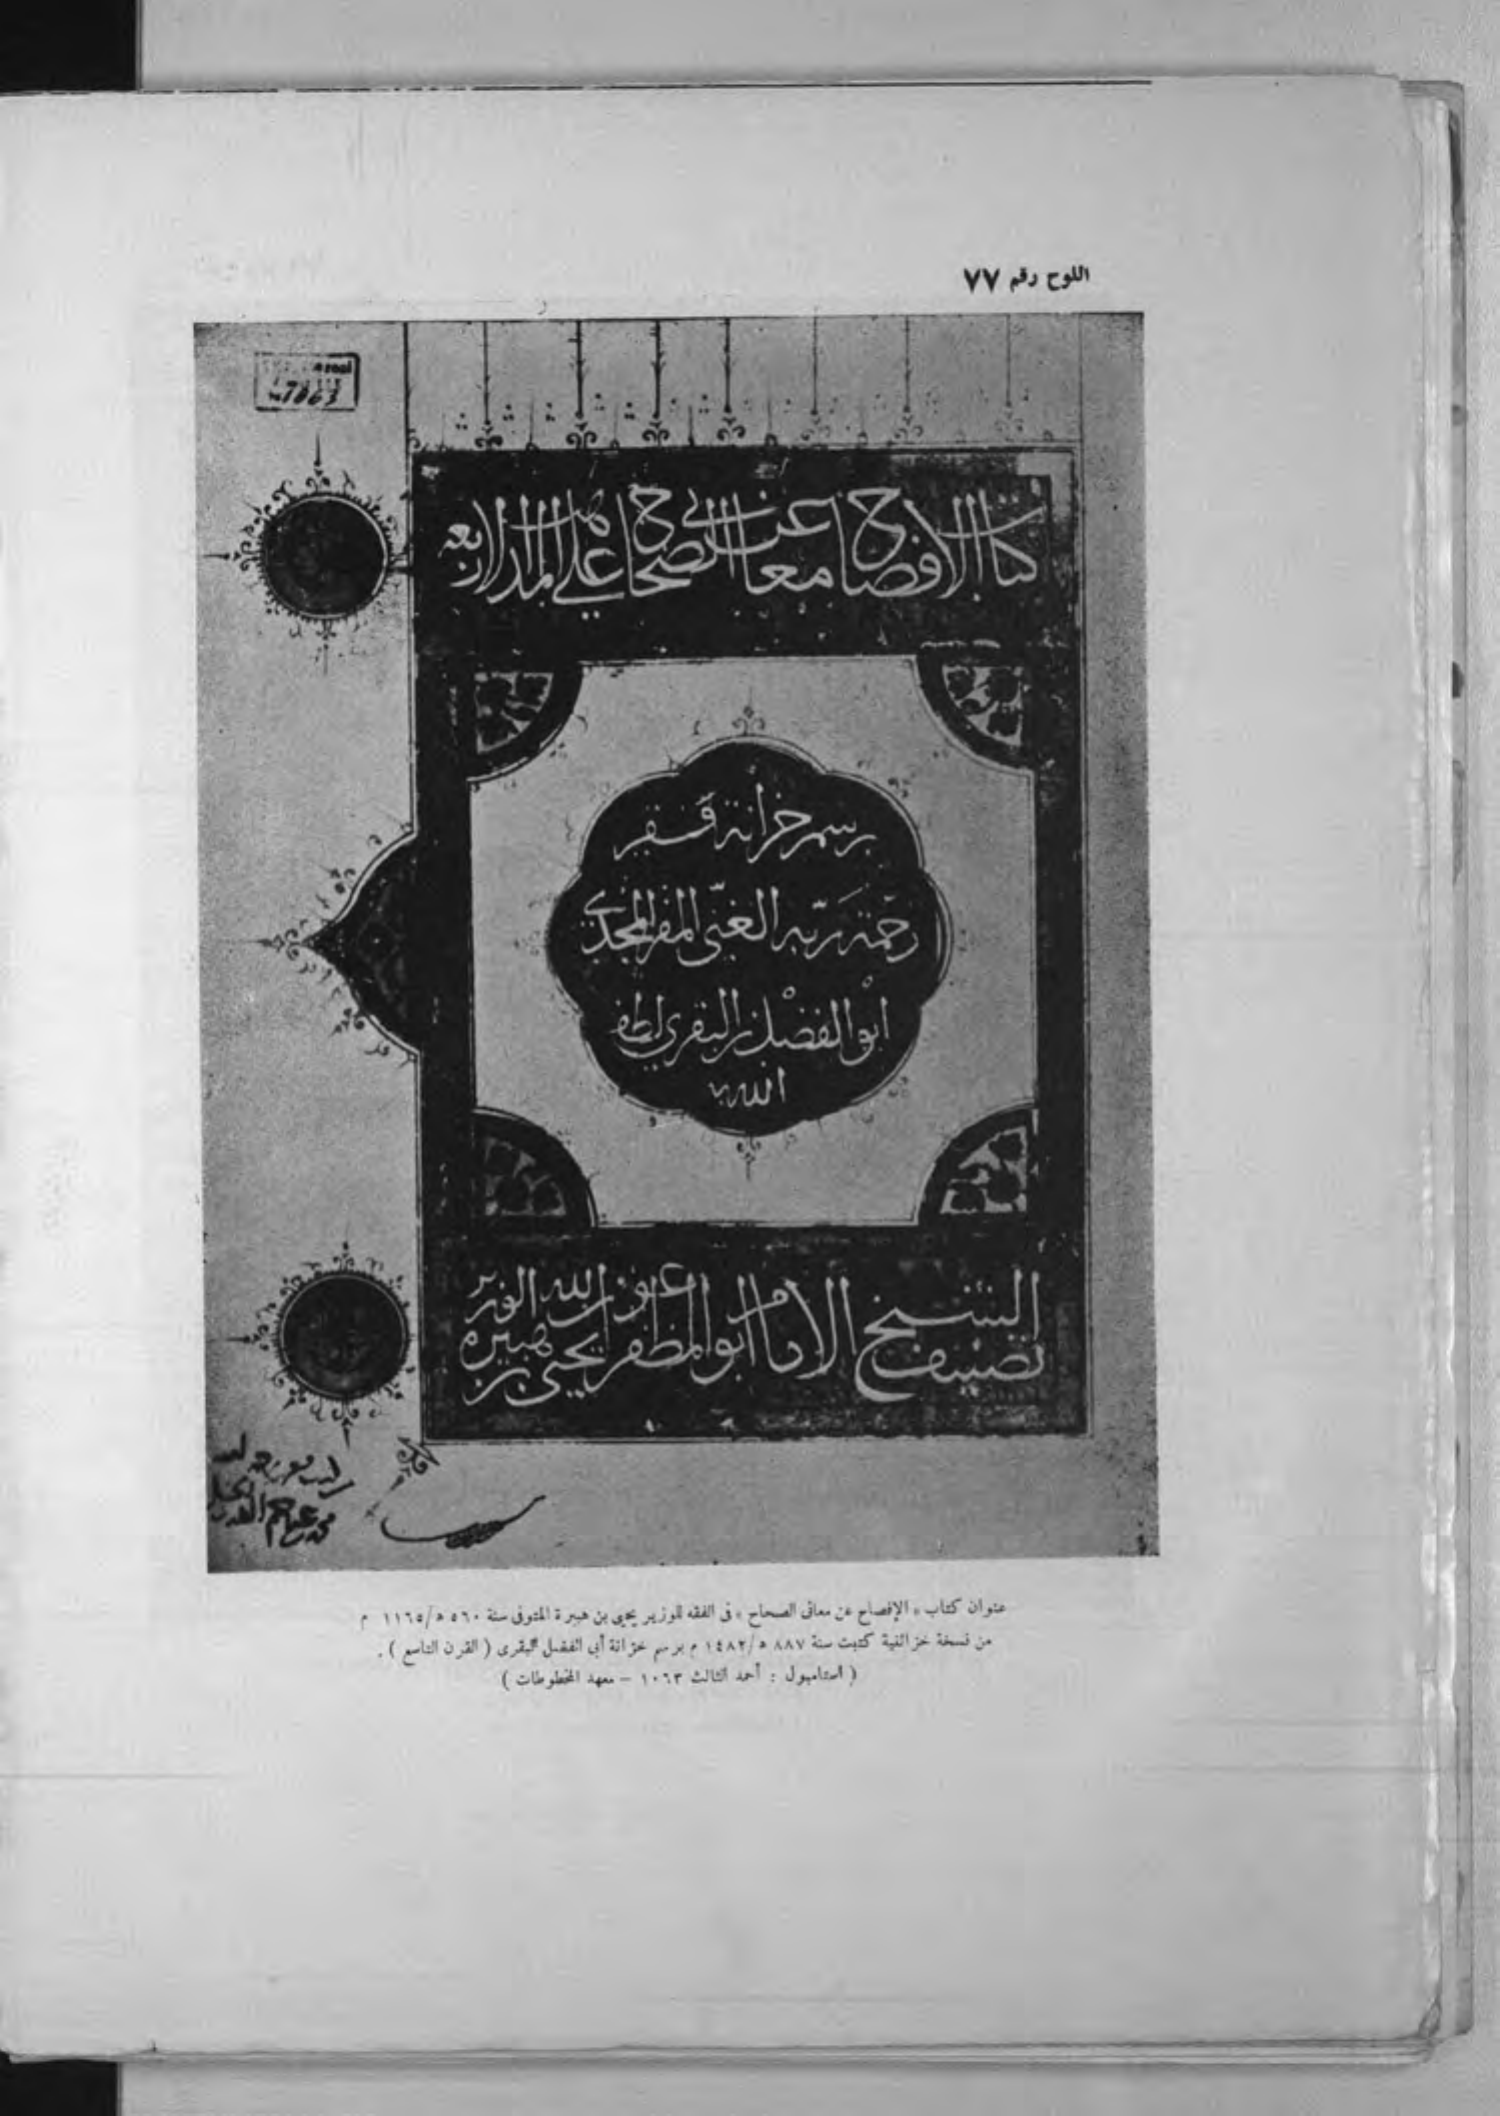 اللوح رقم ٧٧
7863
كتاب الافصاح عن معاني الصحاح على المذاهب الاربعه
برسم خزانة فقير
رحمة ربه الغني المقر المجدي
ابو الفضل بن البقري لطف
الله به
تصنيف الشيخ الامام ابو المظفر عون الله الوزير يحيى بن هبيره
عنوان كتاب « الإفصاح عن معانى الصحاح » فى الفقه للوزير يحيى بن هبيرة المتوفى سنة ٥٦٠ ه/١١٦٥ م
من نسخة خزائنية كتبت سنة ٨٨٧ ه/١٤٨٢ م برسم خزانة أبى الفضل البقرى ( القرن التاسع ) .
( استامبول : أحمد الثالث ١٠٦٣ – معهد المخطوطات )